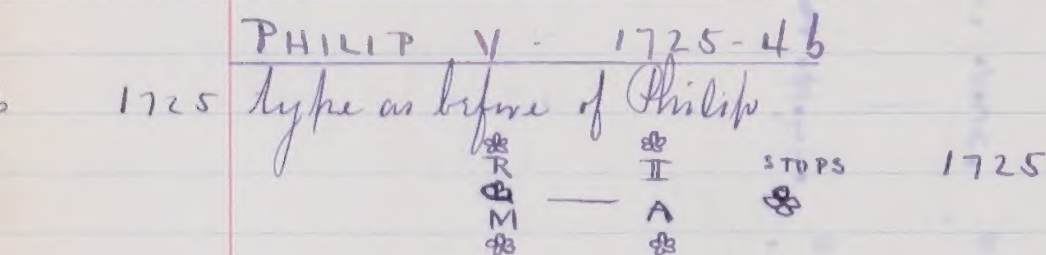 PHILIP V - 1725-46
1725 type as before of Philip
R II STOPS 1725
M — A